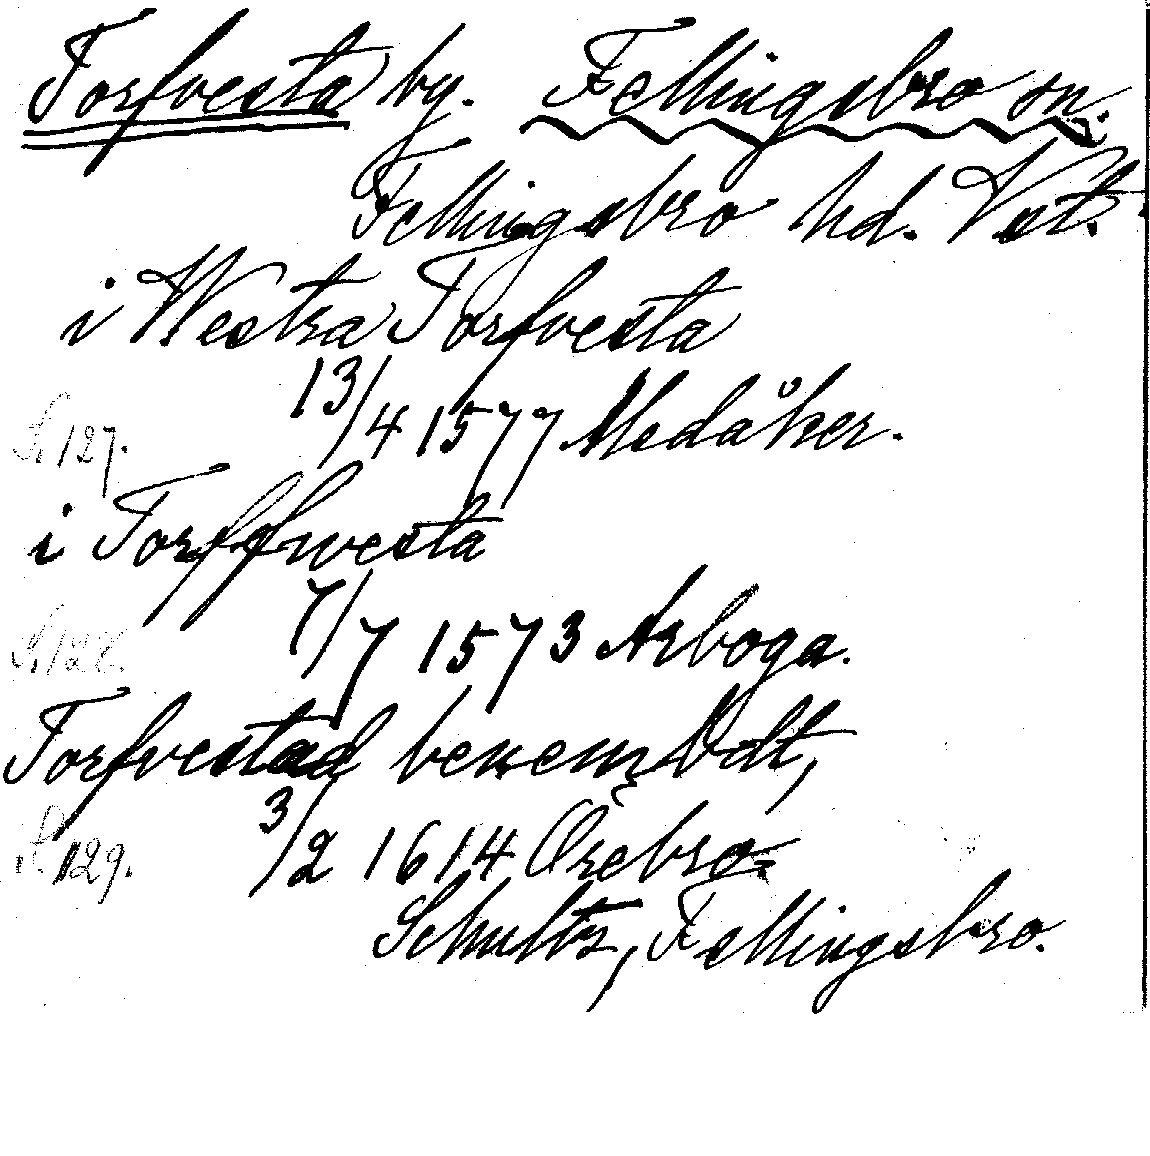 Torfvesta by. Fellingsbro sn.
Fellingsbro hd. Vstm.
i Westra Torfvesta
13/4 1577 Medåker.
S. 127.
i Torffwesta
7/7 1573 Arboga.
S. 128.
Torfvestad benemdt,
3/2 1614 Örebro.
S. 129.
Schultz, Fellingsbro.